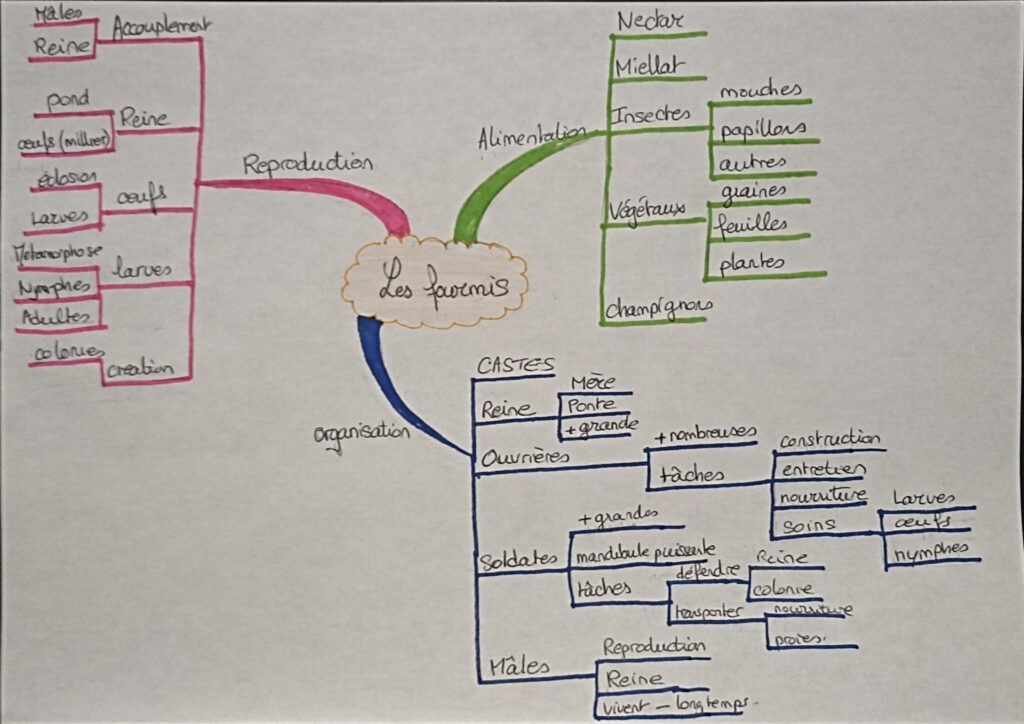 Les fourmis
Reproduction
Accouplement
Mâles
Reine
Reine
pond
œufs (millier)
œufs
éclosion
Larves
larves
Métamorphose
Nymphes
Adultes
creation
colonies
Alimentation
Nectar
Miellat
Insectes
mouches
papillons
autres
Végétaux
graines
feuilles
plantes
champignons
organisation
CASTES
Reine
Mère
Ponte
+ grande
Ouvrières
+ nombreuses
tâches
construction
entretien
nourriture
soins
Larves
œufs
nymphes
Soldates
+ grandes
mandibule puissante
tâches
défendre
Reine
colonie
transporter
nourriture
proies.
Mâles
Reproduction
Reine
vivent - longtemps.